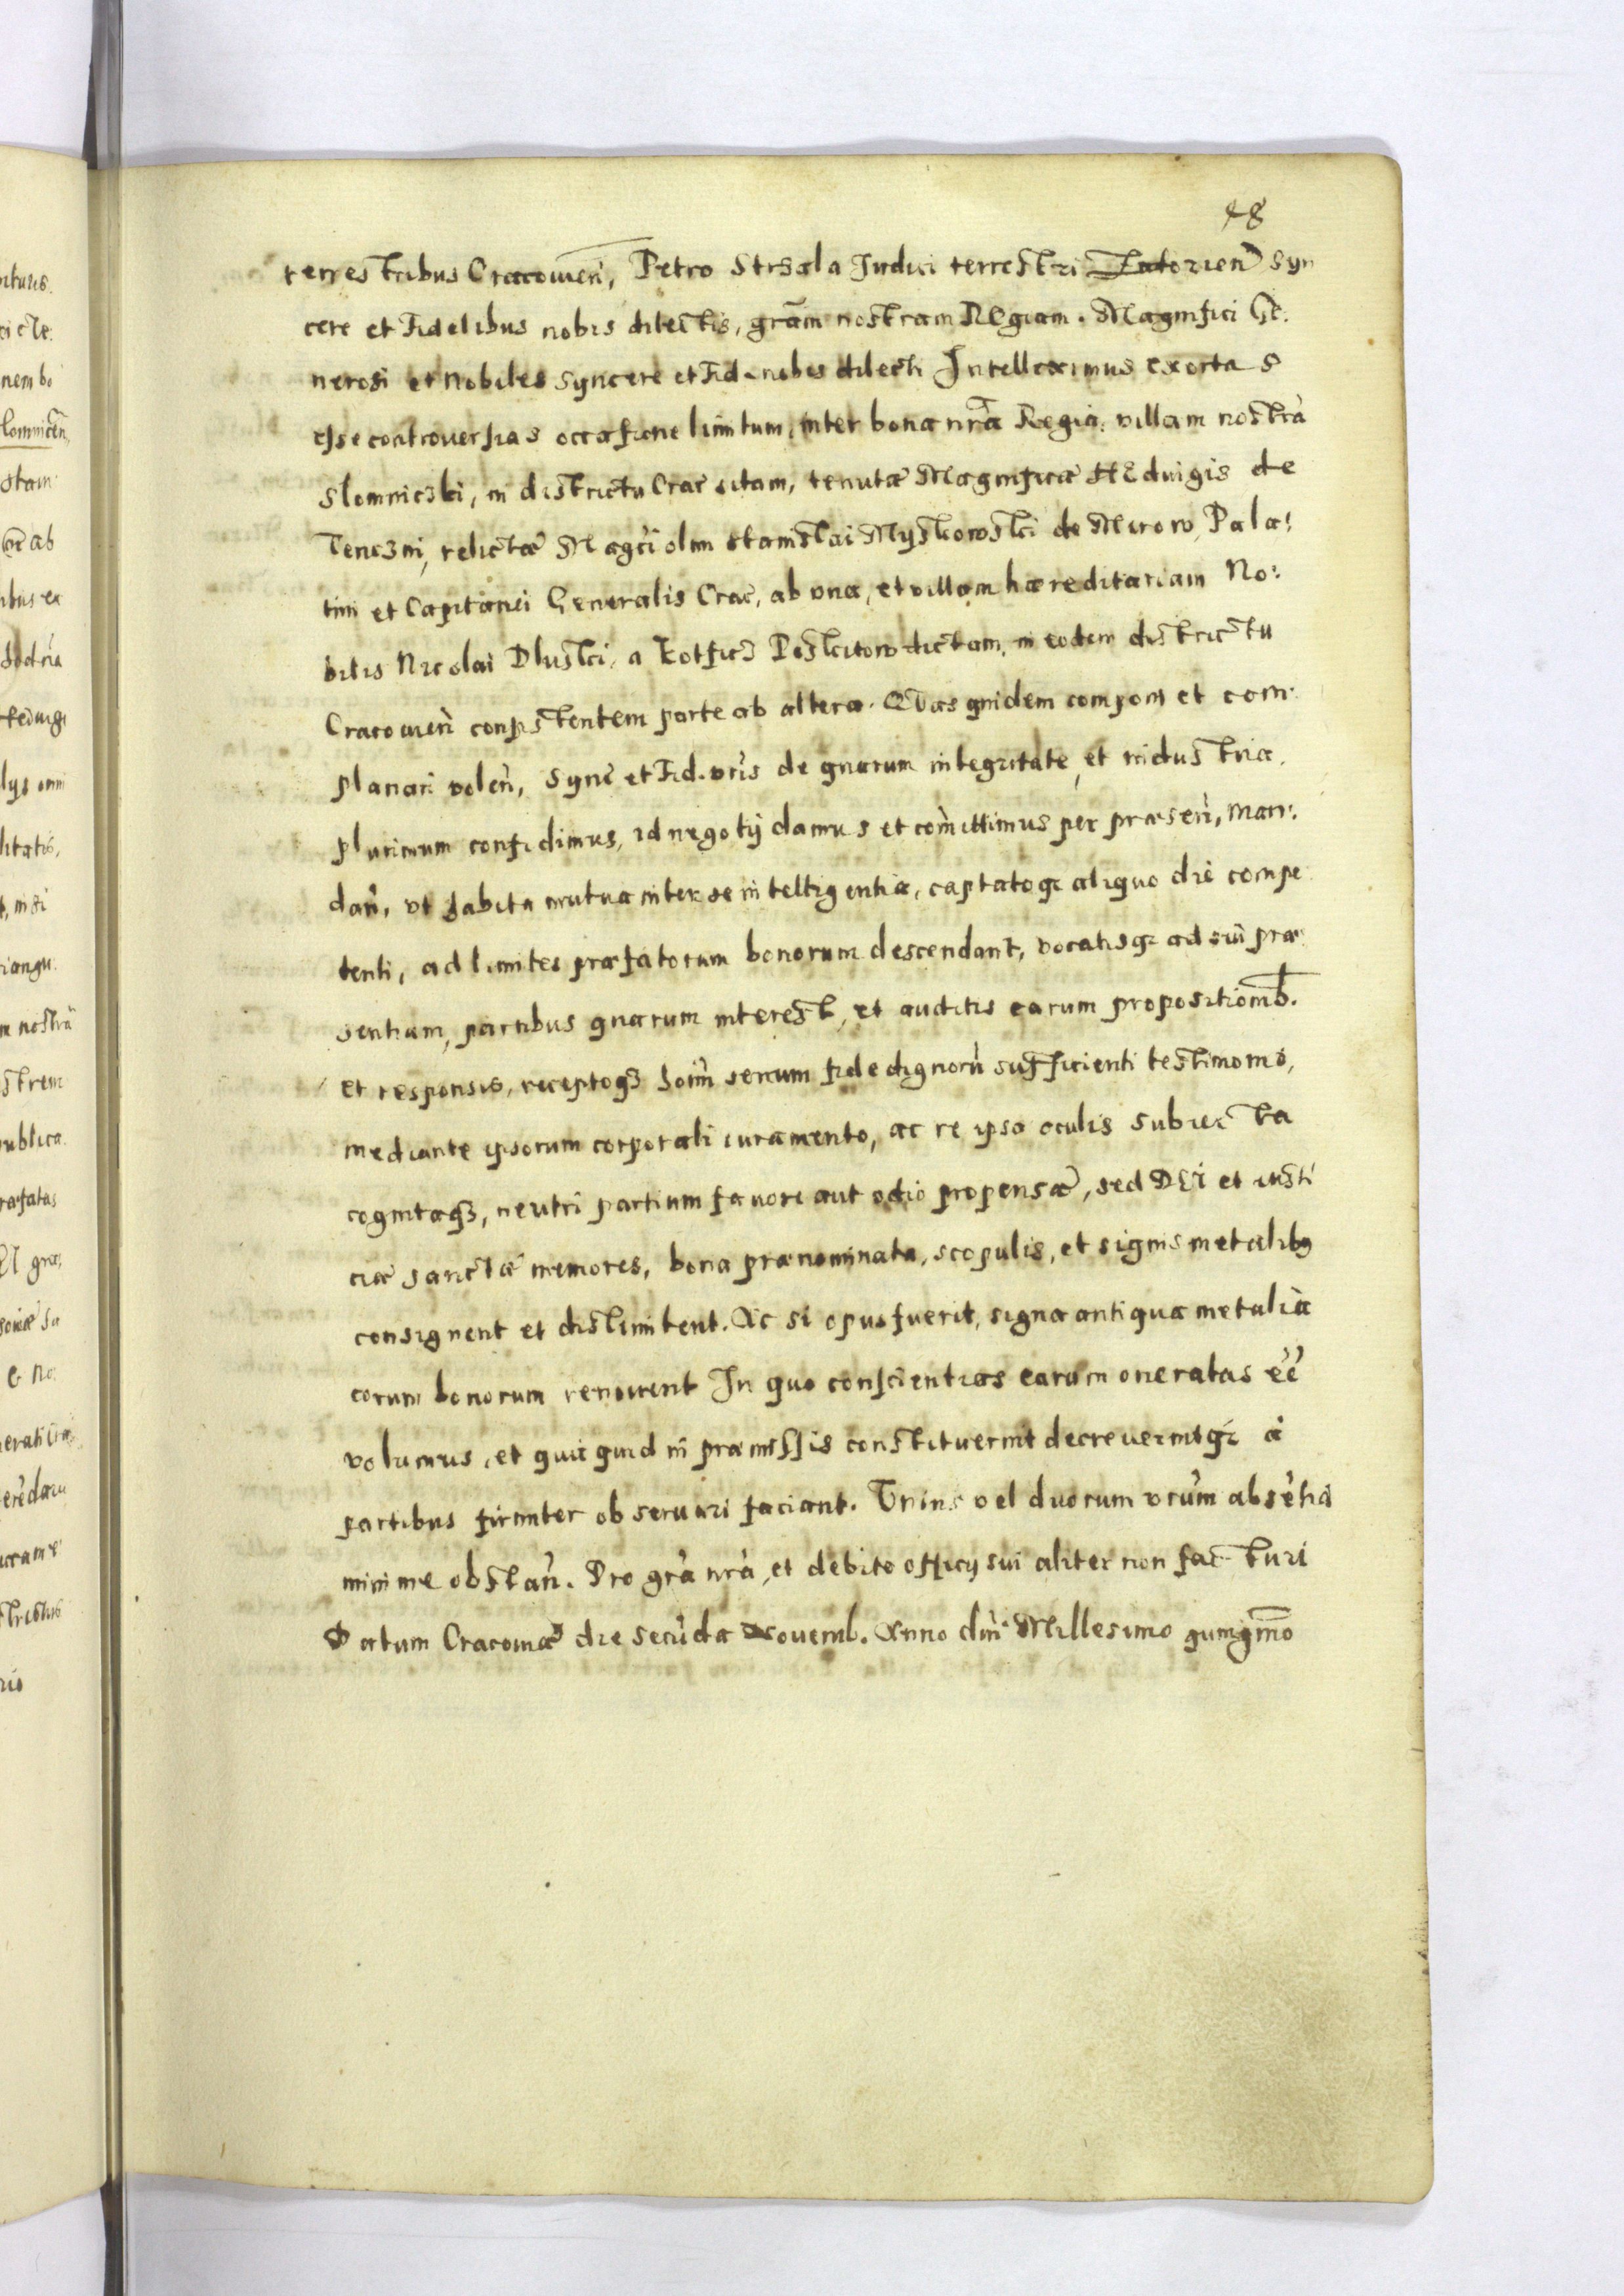 48
terrestribus Cracovien̄, Petro Strzala Iudici terrestri Zatorien̄ Syn
cere et Fidelibus nobis dilectis, gram̄ nostram Regiam. Magnifici Ge:
nerosi et Nobiles Syncere et Fid. nobis dilecti Intelleximus exortas
esse controversias occasione limitum, inter bona nr̄a Regia, villam nostrā
Slomniczki, in districtu Crac̄ sitam, tenutæ Magnificæ Heduigis de
Tenczni, relictæ Magc̄i olim Stanislai Myskowski de Mirow, Pala:
tini et Capitanei Generalis Crac̄, ab vna, et villam hæreditariam No:
bilis Nicolai Dluski, a Kotficz Poskitow dictam, in eodem districtu
Cracovien̄ consistentem parte ab altera. Quas quidem componi et com:
planari volen̄, Sync̄ et Fid. vr̄is de quarum integritate, et industria
plurimum confidimus, id negotij damus et com̄ittimus per præsen̄, man:
dan̄, vt habita mutua inter se intelligentia, captatoq; aliquo die compe
tenti, ad limites præfatorum bonorum descendant, vocatisq; ad sui præ:
sentiam, partibus quarum interest, et auditis earum propositionib.
et responsis, receptoq3 hoīm senum fide dignorū sufficienti testimonio,
mediante ipsorum corporali iuramento, ac re ipsa oculis subiecta
cognitaq3, neutri partium favore aut odio propensæ, sed DEI et iusti
ciæ sanctæ memores, bona prænominata, scopulis, et signis metalibq
consignent et dislimitent. Ac si opus fuerit, signa antiqua metalia
eorum bonorum renouent In quo conscientias earum oneratas ēē
volumus, et quicquid in præmissis constituerint decreuerintq; à
partibus firmiter obseruari faciant. Vnius vel duorum vr̄um absētia
minime obstan̄. Pro gr̄a nr̄a, et debito officij sui aliter non facturi
Datum Cracoviæ die secūda Nouemb. Anno dn̄i Millesimo quingm̄o